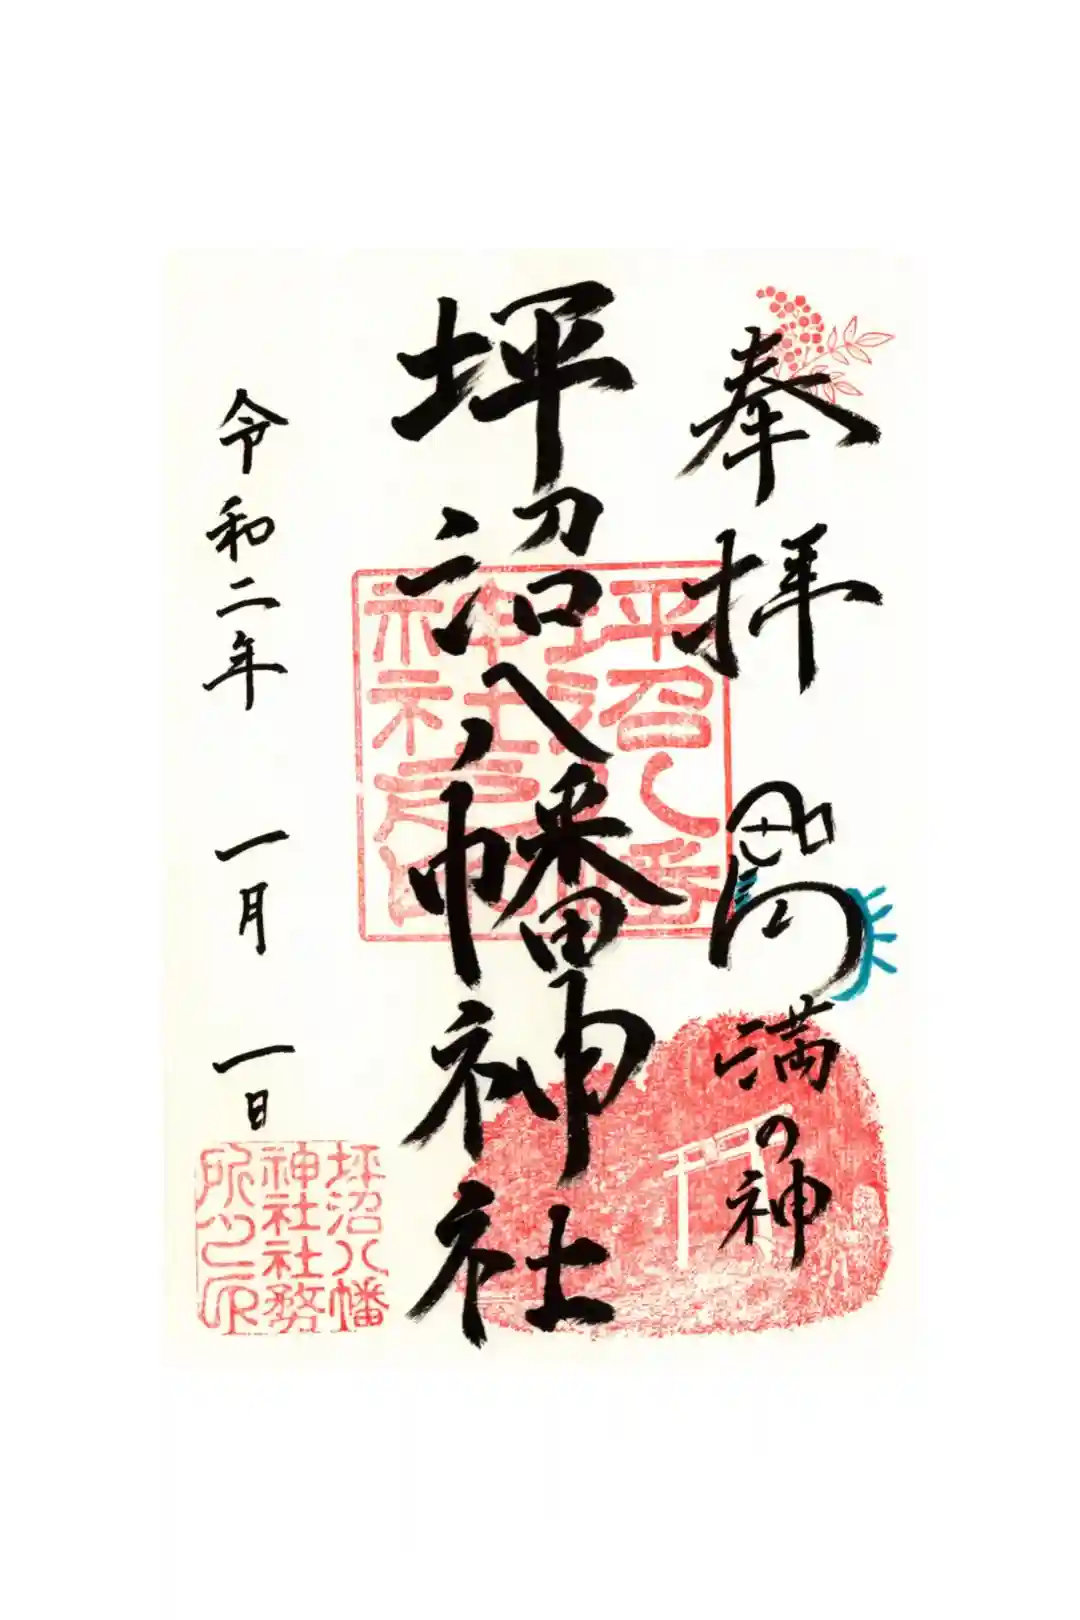 奉拝
満の神
坪沼八幡神社
坪沼八幡
神社
令和二年 一月 一日
坪沼八幡
神社社務
所之印